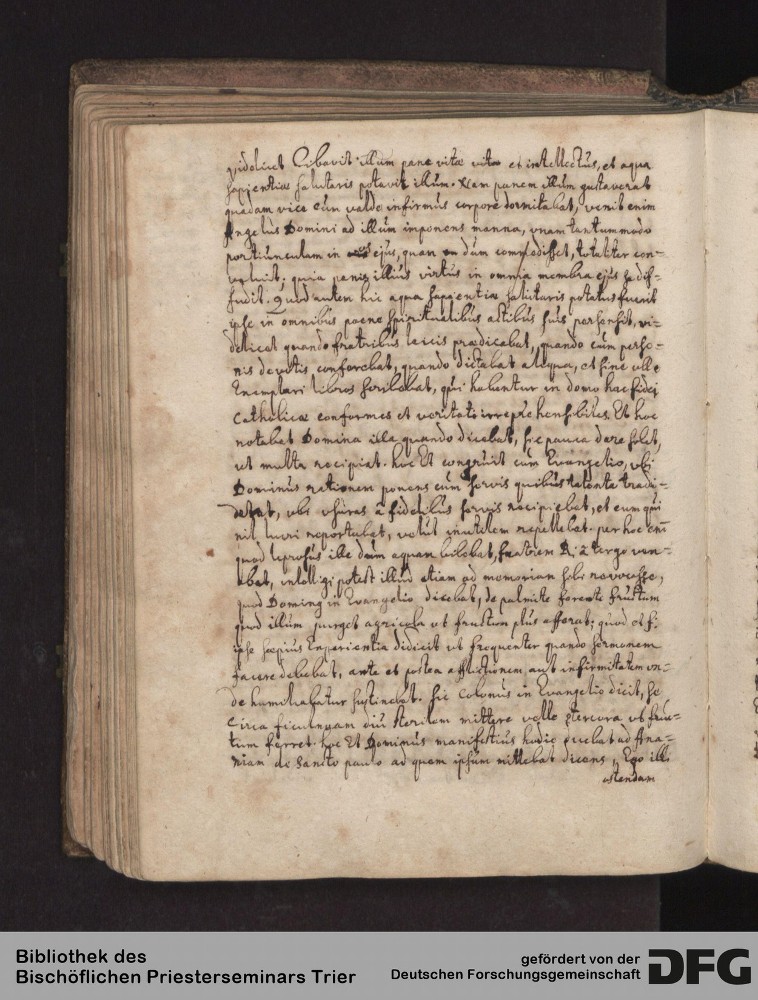 videlicet Cibavit illum pane vitæ vitæ et intellectus, et aqua
sapientiæ salutaris potavit illum. Nam panem illum gustaverat
quadam vice cùm valde infirmus corpore dormitabat, venit enim
Angelus Domini ad illum imponens manna, unam tantummodo
portiunculam in ejus, quam dum comedisset, totaliter con-
valuit; quia panis illius virtus in omnia membra ejus se dif-
fudit. Quod autem hic aqua sapientiæ salutaris potatus fuerit
ipse in omnibus pæne spiritualibus actibus suis persensit, vi-
delicet quando fratribus laicis prædicabat, quando cùm perso-
nis devotis conferebat, quando dictabat aliqua, et sine ullo
Exemplari libros scribebat, qui habentur in domo hac fidei
Catholicæ conformes et veritati irreprehensibiles. Et hoc
notabat Domina illa quando dicebat, sic pauca dare solet,
ut multa recipiat. hoc Et congruit cum Evangelio, ubi
Dominus rationem ponens cum servis quibus talenta tradi-
derat, ubi usuras à fidelibus servis recipiebat, et eum qui
nil lucri reportabat, velut inutilem repellebat. per hoc enī
quod leprosus ille dum aquam bibebat, fratrem R. à tergo
ebat, intelligi potest illud etiam ad memoriam sibi revocasse,
quod Dominꝰ in Evangelio dicebat, de palmite ferente fructum
quod illum purget agricola ut fructum plus afferat; quod et si
ipse sæpius Experientia didicit ut frequenter quando sermonem
facere debebat, ante et postea afflictionem aut infirmitatem un-
de humiliabatur sustinebat. sic Colonus in Evangelio dicit, se
Circa ficulneam diu sterilem mittere velle stercora ut fruc-
tum ferret. hoc Et Dominus manifestius ad Ana-
niam de Sancto paulo ad quem ipsum mittebat dicens, Ego illi
ostendam
Bibliothek des
Bischöflichen Priesterseminars Trier
gefördert von der
Deutschen Forschungsgemeinschaft
DFG